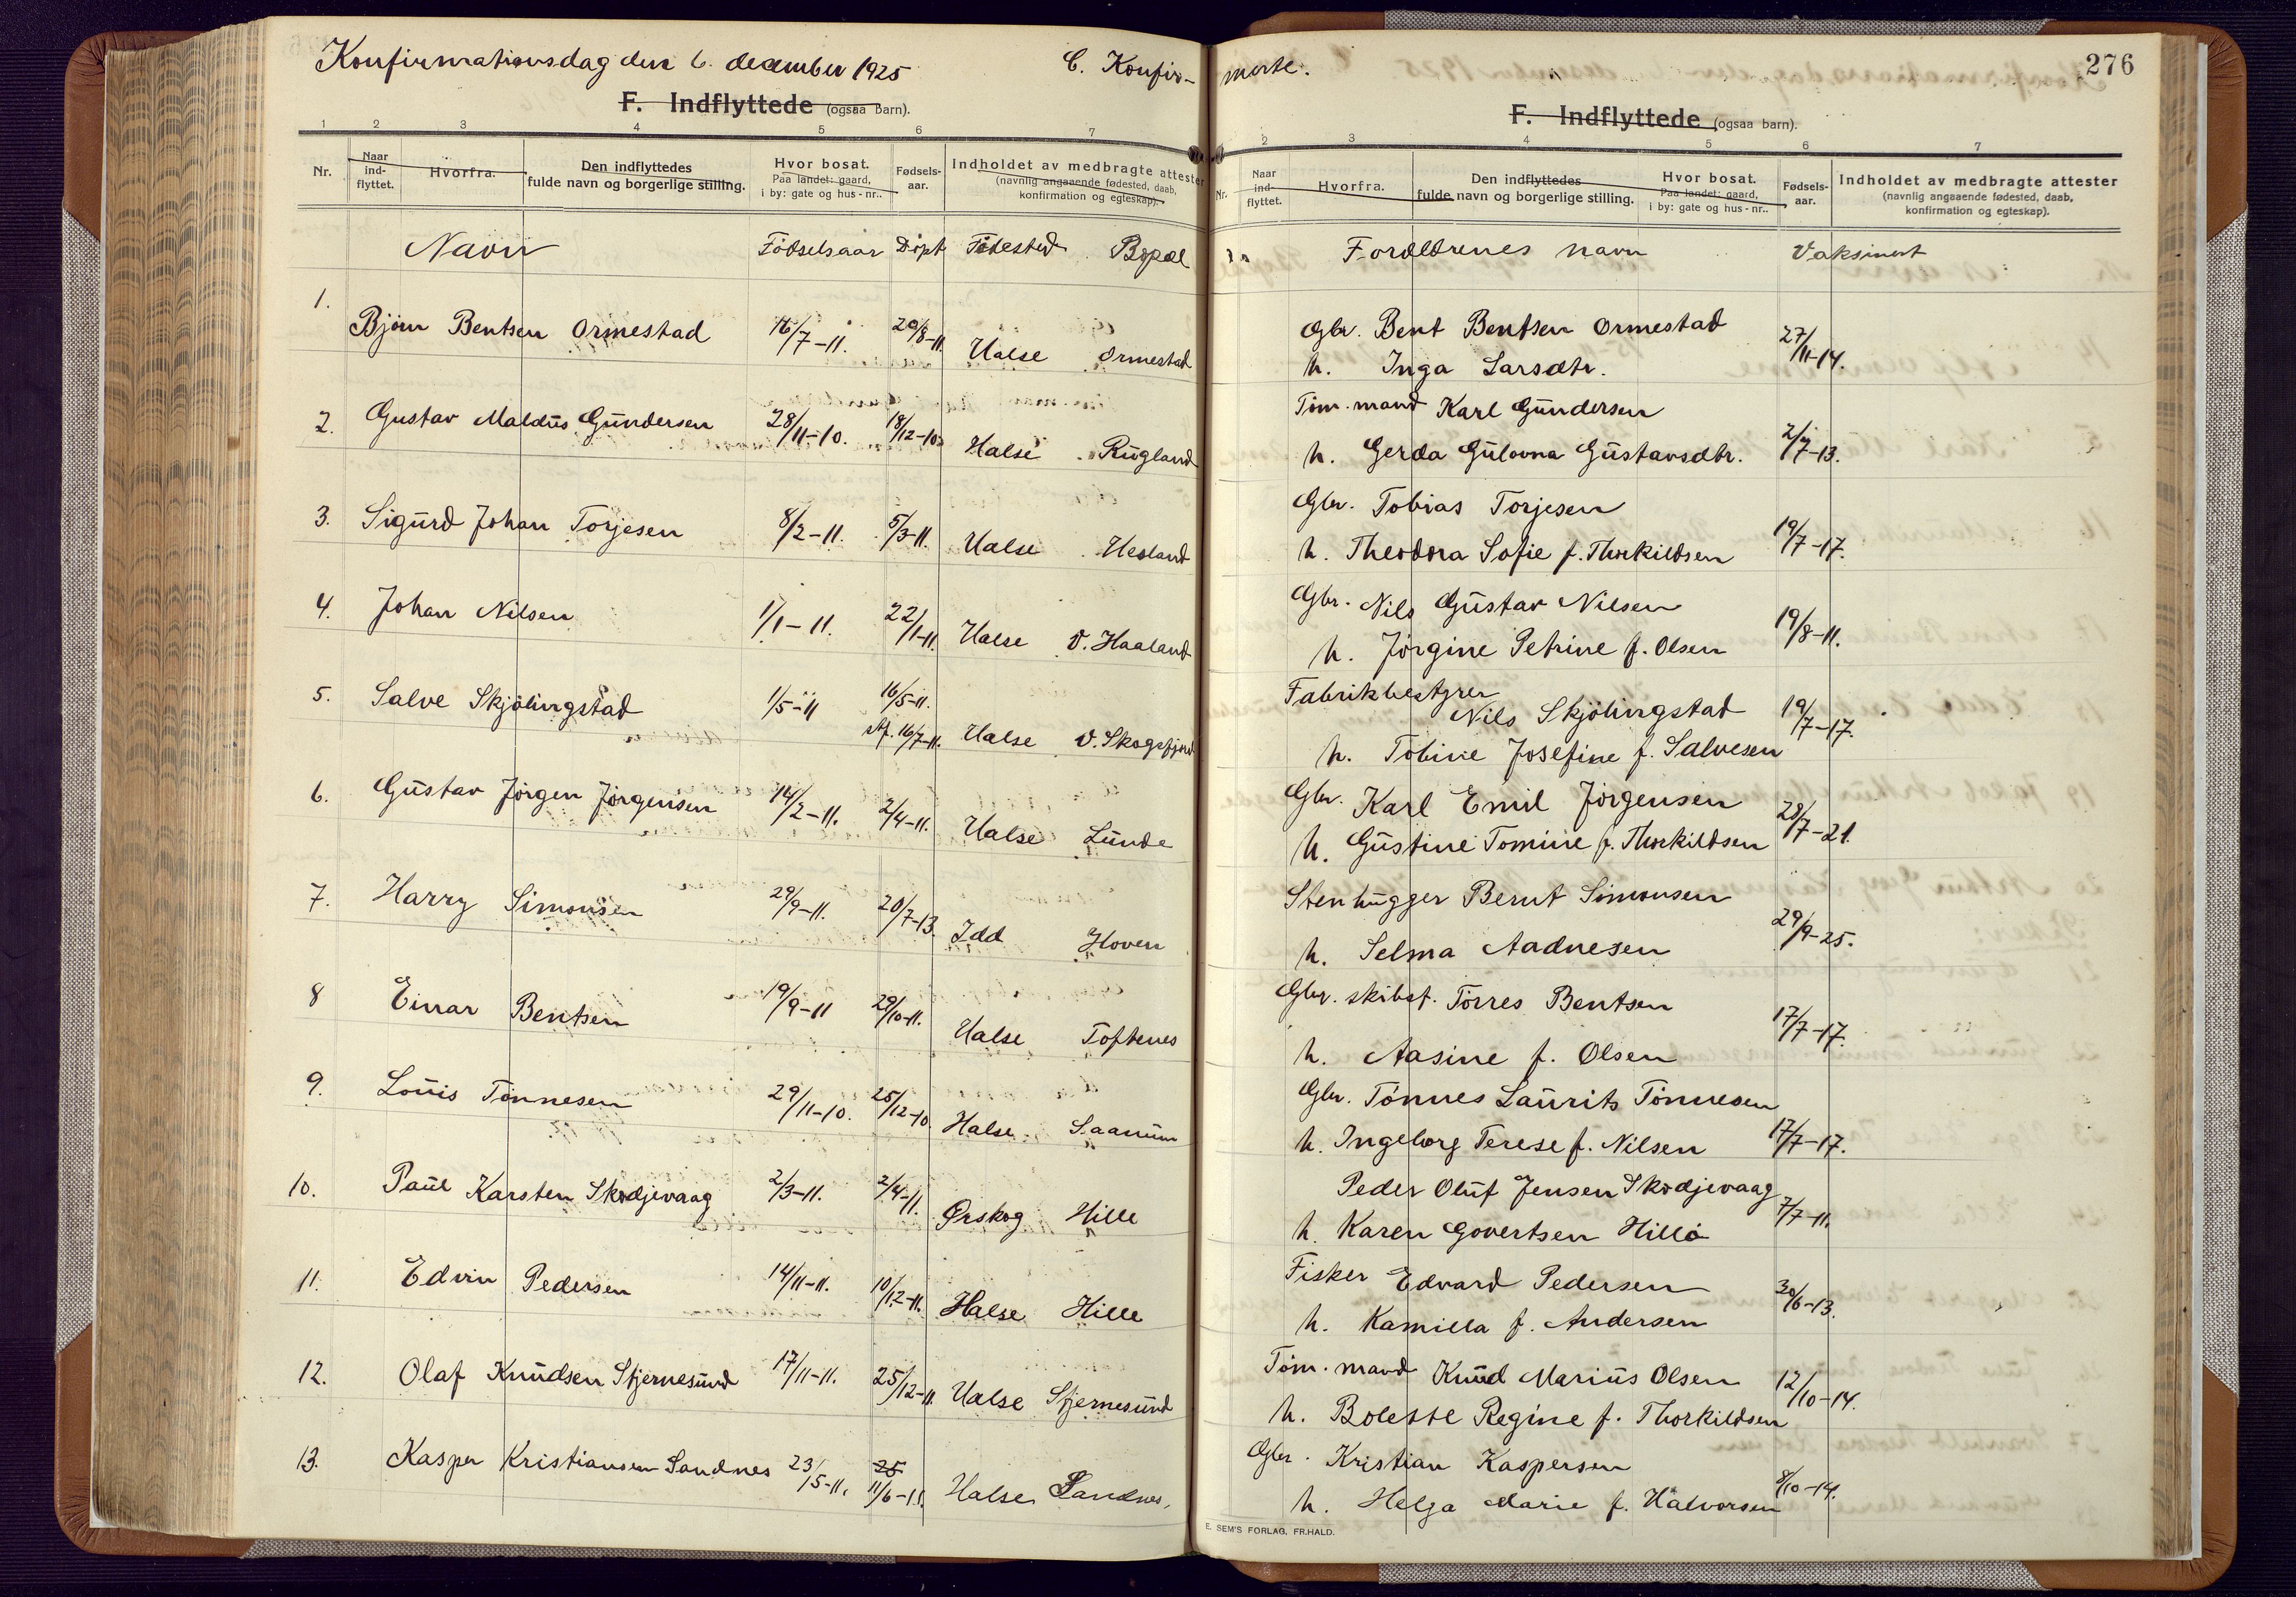 Konfirmationsdag den 6. december 1925
C. Konfir-
merte.
276
F. Indflyttede (ogsaa barn).
1 2 3 4 5 6 7
Nr. Naar ind-flyttet. Hvorfra. Den indflyttedes fulde navn og borgerlige stilling. Hvor bosat. Paa landet: gaard, i by: gate og hus-nr.. Fødsels-aar. Indholdet av medbragte attester (navnlig angaaende fødested, daab, konfirmation og egteskap).
Navn Födselsaar Döpt Födested Bopæl
1. Bjørn Bentsen Ormestad 16/7-11. 20/8-11. Halse Ormestad
2. Gustav Maldus Gundersen 28/11-10. 18/12-10. Halse Rugland
3. Sigurd Johan Torjesen 8/2-11. 5/3-11. Halse Hesland
4. Johan Nilsen 1/1-11. 22/1-11. Halse V. Haaland
5. Salve Skjölingstad 1/5-11 16/5-11.
stf. 16/7-11. Halse V. Skogsfjord
6. Gustav Jörgen Jörgensen 14/2-11. 2/4-11. Halse Lunde
7. Harry Simonsen 29/9-11. 20/7-13. Idd Hoven
8 Einar Bentsen 19/9-11 29/10-11. Halse Toftenes
9. Louis Tönnesen 29/11-10. 25/12-10. Halse Saanum
10. Paul Karsten Skodjevaag 2/3-11. 2/4-11. Ørskog Hille
11. Edvin Pedersen 14/11-11. 10/12-11. Halse Hille
12. Olaf Knudsen Stjernesund 17/11-11. 25/12-11. Halse Stjernesund
13. Kasper Kristiansen Sandnes 23/5-11. 25
11/6-11. Halse Sandnes.
F. Indflyttede (ogsaa barn).
2 3 4 5 6 7
Nr. Naar ind-flyttet. Hvorfra. Den indflyttedes fulde navn og borgerlige stilling. Hvor bosat. Paa landet: gaard, i by: gate og hus-nr.. Fødsels-aar. Indholdet av medbragte attester (navnlig angaaende fødested, daab, konfirmation og egteskap).
Forældrenes navn Vaksinert
Gbr. Bent Bentsen Ormestad 27/11-14.
h. Inga Larsdtr.
Töm. mand Karl Gundersen
h. Gerda Gulovna Gustavsdtr. 2/7-13.
Gbr. Tobias Torjesen
h. Theodora Sofie f. Thorkildsen 19/7-17.
Gbr. Nils Gustav Nilsen 19/8-11.
h. Jörgine Petrine f. Olsen
Fabrikbestyrer
Nils Skjölingstad 19/7-17.
h. Tobine Josefine f. Salvesen
Gbr. Karl Emil Jörgensen 28/7-21.
h. Gustine Tomine f. Thorkildsen
Stenhugger Bernt Simonsen 29/9-25.
h. Selma Aadnesen
Gbr. skibsf. Törres Bentsen 17/7-17.
h. Aasine f. Olsen
Gbr. Tönnes Laurits Tönnesen
h. Ingeborg Terese f. Nilsen 17/7-17.
Peder Oluf Jensen Skodjevaag 7/7-11.
h. Karen Govertsen Hille
Fisker Edvard Pedersen 30/6-13.
h. Kamilla f. Andersen
Töm. mand Knud Marius Olsen 12/10-14.
h. Bolette Regine f. Thorkildsen
Gbr. Kristian Kaspersen
h. Helga Marie f. Halvorsen 8/10-14.
E. SEM'S FORLAG, FR.HALD.